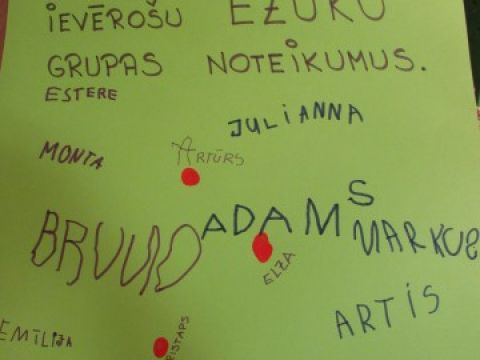 IEVĒROŠU EZUKU
GRUPAS NOTEIKUMUS.
ESTERE
JULIANNA
MONTA
ARTŪRS
BRUUO
ADAMS
MARKUS
ELZA
ARTIS
EMĪLIJA
RISTAPS